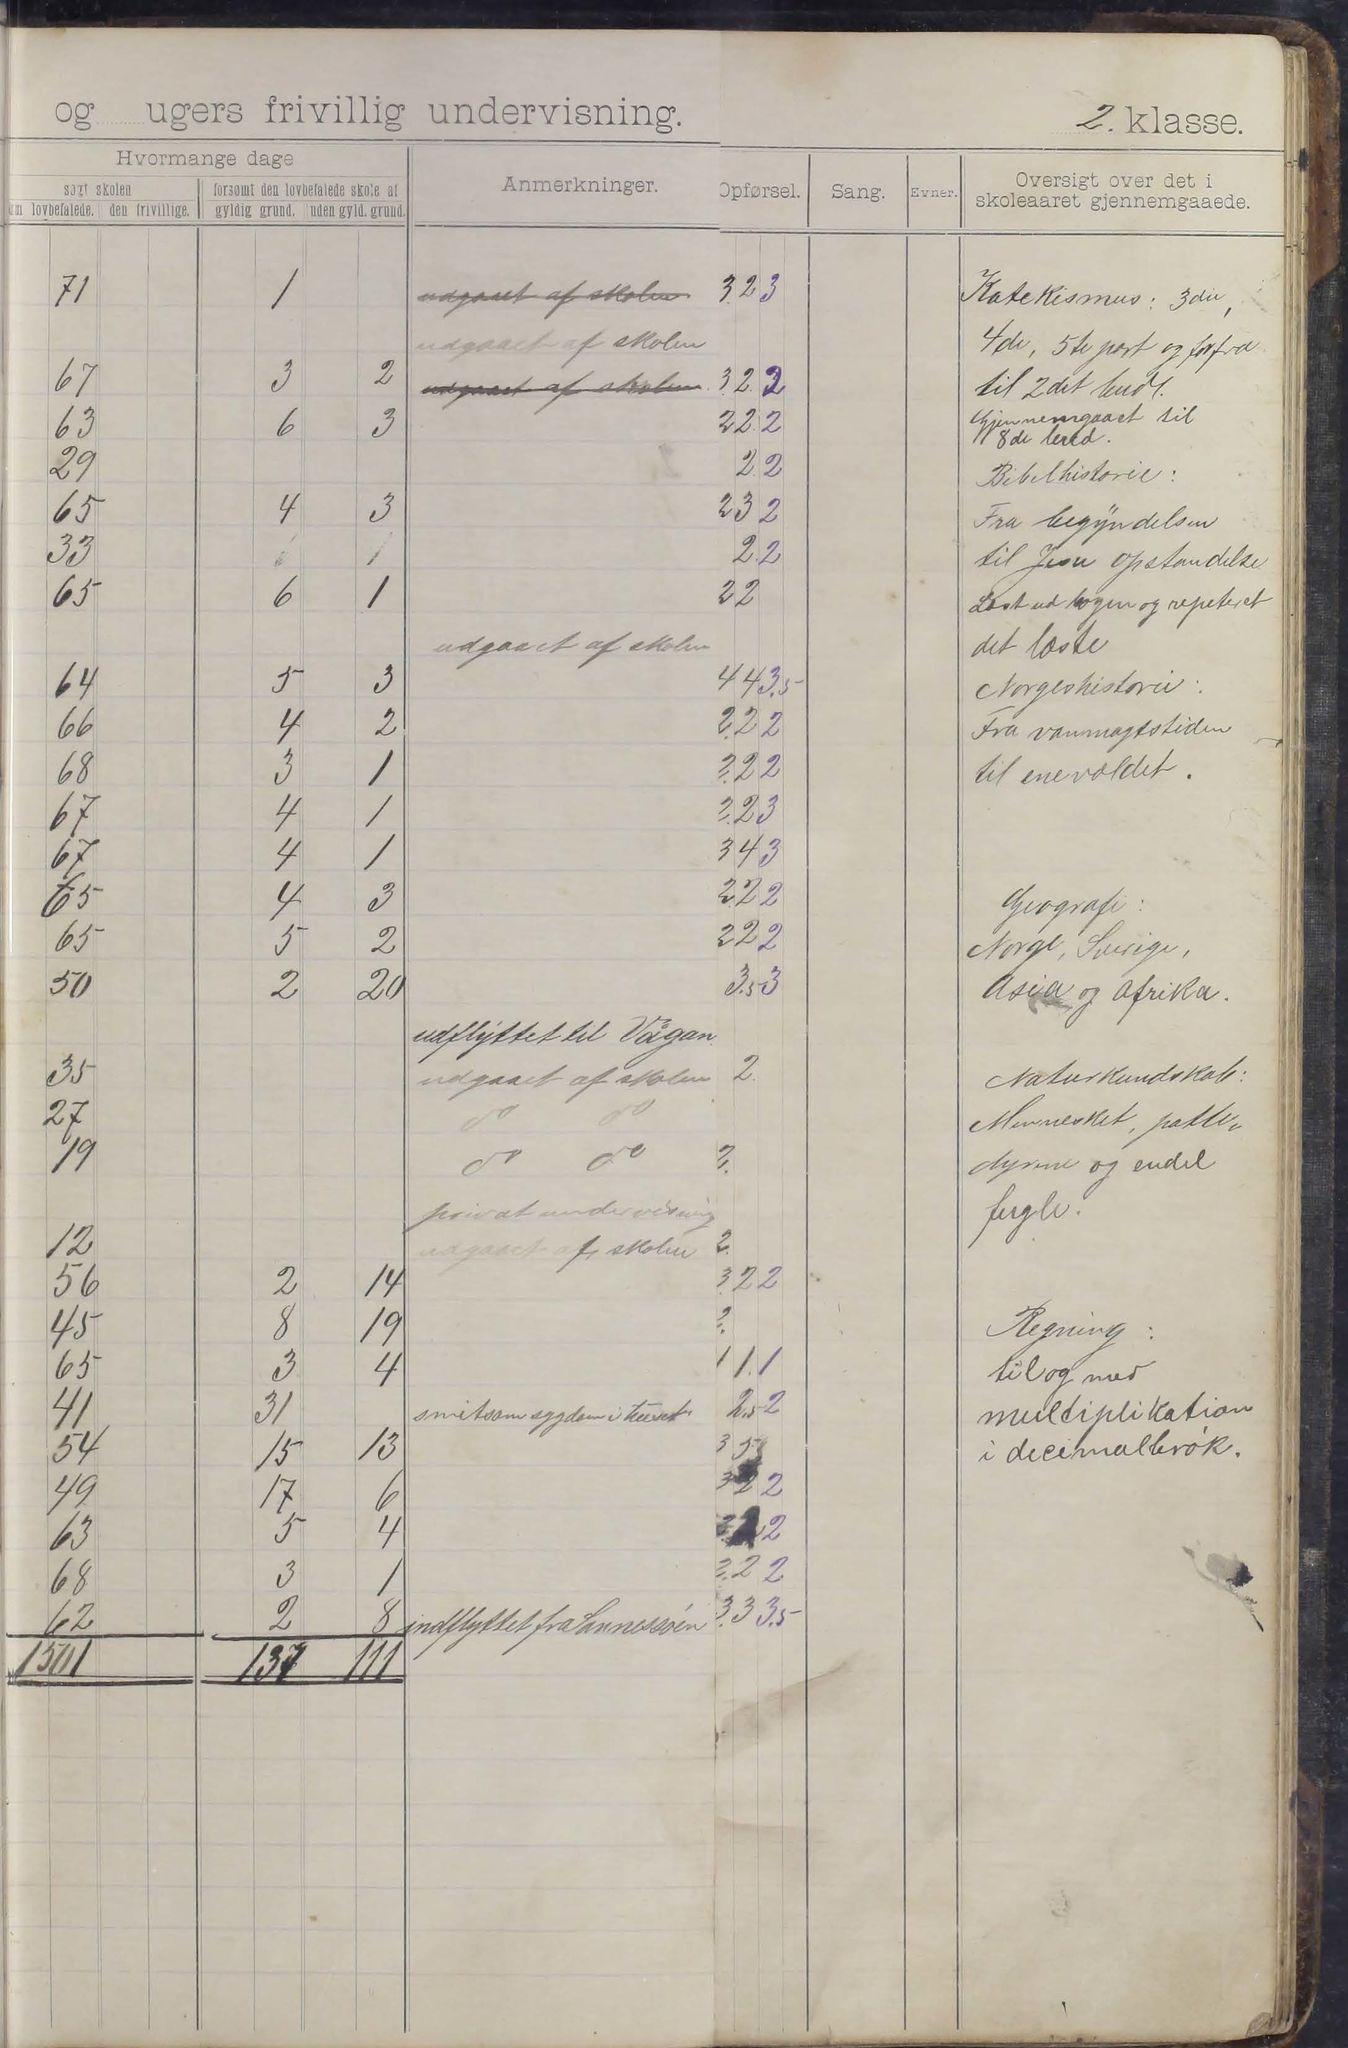 og ugers frivillig undervisning. 2. klasse.
Hvormange dage
søgt skolen forsømt den lovbefalede skole af Anmerkninger. Opførsel. Sang. Evner. Oversigt over det i
skoleaaret gjennemgaaede.
lovbefalede. den frivillige. gyldig grund. uden gyld. grund.
71 1 udgaaet af skolen 3 2 3 Katekismus: 3die,
udgaaet af skolen 4de, 5te part og forfra
67 3 2 udgaaet af skolen 3. 2. 2 til 2det bud.
63 6 3 2 2. 2 Gjennemgaaet til
8de bud.
29 2 2 Bibelhistorie:
65 4 3 2 3 2 Fra begyndelsen
33 1 2. 2 til Jesu opstandelse
65 6 1 2 2 Læst ud bogen og repeteret
udgaaet af skolen det læste
64 5 3 4 4 3.5 Norgeshistorie:
66 4 2 2. 2 2 Fra vanmagtstiden
68 3 1 2. 2 2 til enevældet.
67 4 1 2. 2 3
67 4 1 3 4 3
65 4 3 2. 2 2 Geografi:
65 5 2 2 2 2 Norge, Sverige,
50 2 20 3.5 3 Asia og Afrika.
udflyttet til Vågan
35 udgaaet af skolen 2. Naturkundskab:
27 do do Mennesket, patte-
19 do do 2. dyrene og endel
privat undervisning fugle.
12 udgaaet af skolen 2.
56 2 14 3. 2 2
45 8 19 2. Regning:
65 3 4 1 1. 1 til og med
41 31 smitsom sygdom i huset 2.5 2 multiplikation
54 15 13 3 5 i decimalbrøk.
49 17 6 3 2 2
63 5 4 2
68 3 1 2. 2 2
62 2 8 indflyttet fra Sannessøen 3. 3 3.5
1501 137 111